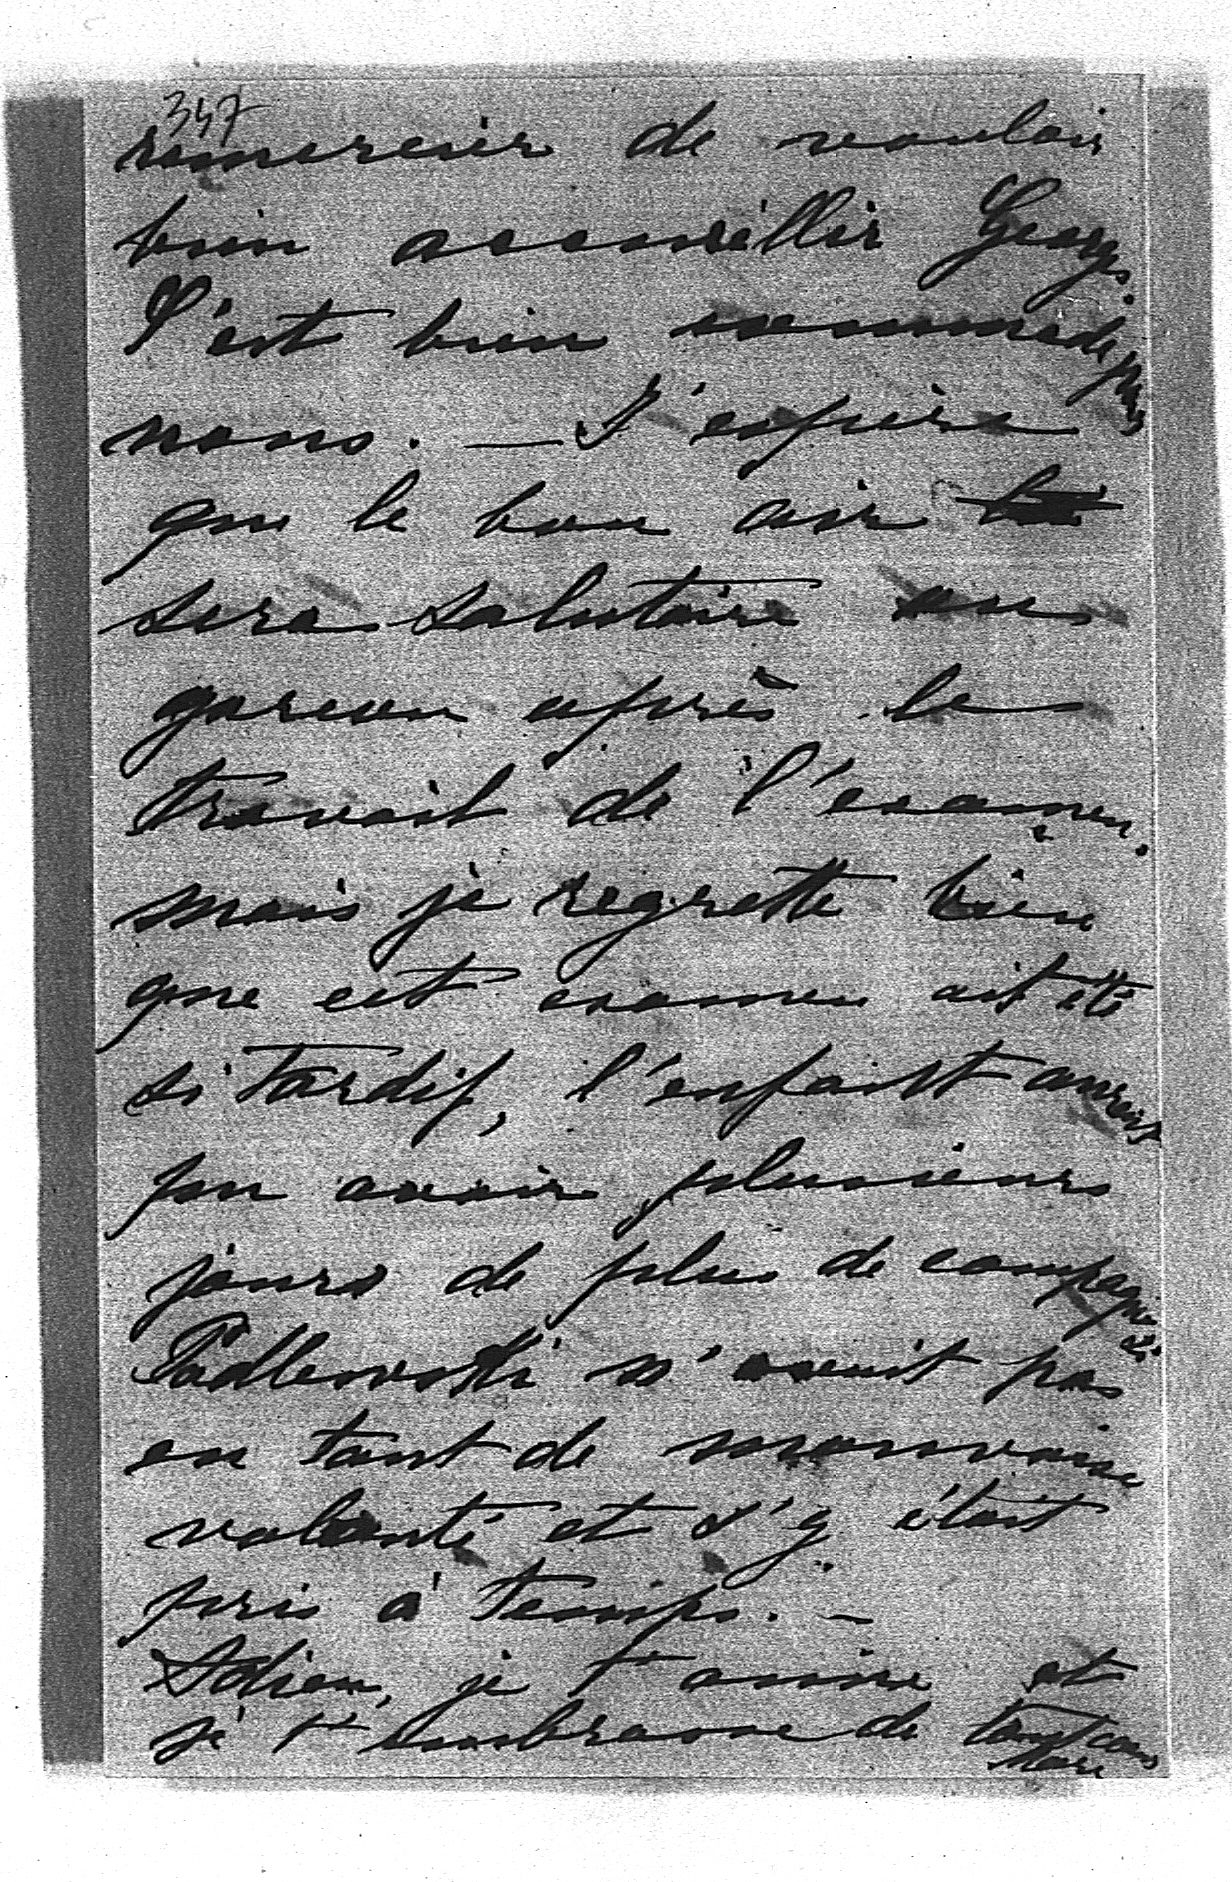 347
remercier de vouloir
bien accueillir Georges.
C'est bien commode pour
nous. — J'espère
que le bon air
sera salutaire au
garcon après le
travail de l'examen.
mais je regrette bien
que cet examen ait été
si tardif, l'enfant aurait
pu avoir plusieurs
jours de plus de campagne si
Padlewski n'avait pas
eu tant de mauvaise
volonté et s'y était
pris à temps. —
Adieu, je t'aime et
je t'embrasse de tout cœur